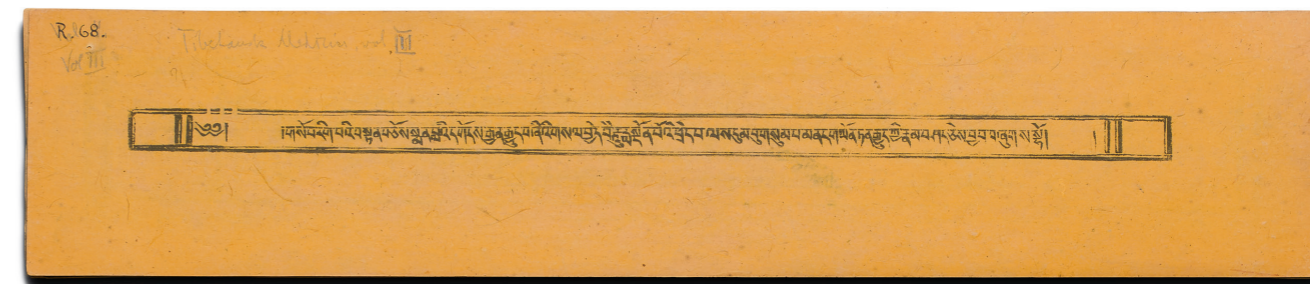 R.168.
Vol III
vol III
༄༅། །གསོ་བ་རིག་པའི་བསྟན་བཅོས་སྨན་བླའི་དགོངས་རྒྱན་རྒྱུད་བཞིའི་གསལ་བྱེད་བཻཌཱུརྱ་སྔོན་པོའི་ཕྲེང་བ་ལས་དུམ་བུ་གསུམ་པ་མན་ངག་ཡོན་ཏན་རྒྱུད་ཀྱི་རྣམ་བཤད་ཅེས་བྱ་བ་བཞུགས་སོ། །